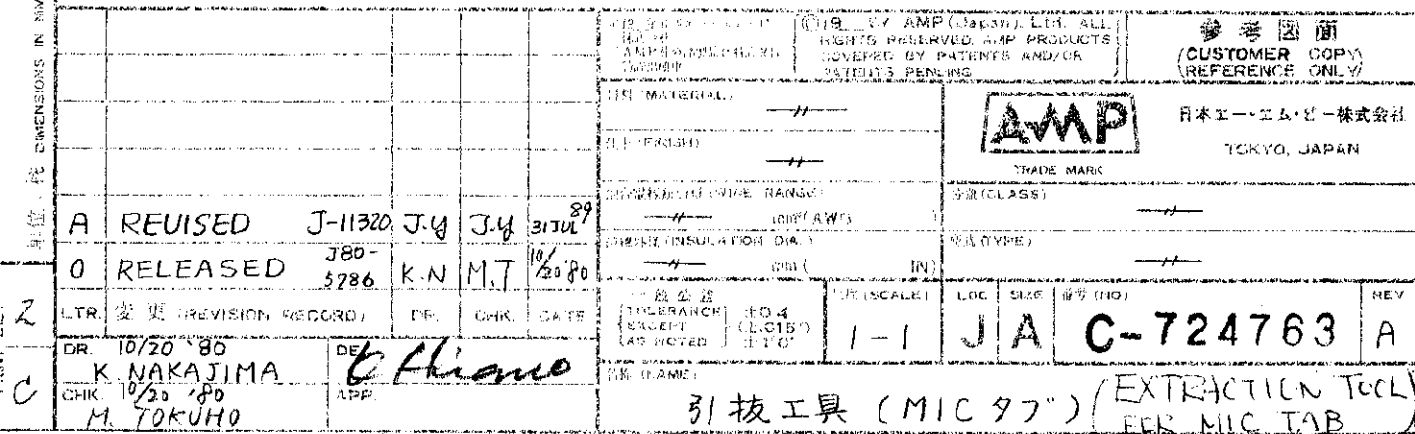 DIMENSIONS IN MM
A REVISED J-11320 J.Y J.Y 31 JUL 89
0 RELEASED J80-5786 K.N M.T 10/20 '80
LTR. 変更 (REVISION RECORD) DR. CHK. DATE
DR. 10/20 '80
K. NAKAJIMA
CHK. 10/20 '80
M. TOKUHO
DE
APP.
Z
C
© 19__ BY AMP (Japan), Ltd. ALL
RIGHTS RESERVED. AMP PRODUCTS
COVERED BY PATENTS AND/OR
PATENTS PENDING
参考図面
(CUSTOMER COPY)
(REFERENCE ONLY)
(MATERIAL)
(FINISH)
(WIRE RANGE)
mm² (AWG )
(INSULATION DIA.)
mm ( IN)
AMP
TRADE MARK
日本エー・エム・ピー株式会社
TOKYO, JAPAN
(CLASS)
(TYPE)
一般公差
TOLERANCE
EXCEPT
AS NOTED
±0.4
(±.015")
±1°0'
(SCALE)
1-1
LOC J
SIZE A
番号 (NO) C-724763
REV A
(NAME)
引抜工具 (MICタブ) (EXTRACTION TOOL FOR MIC TAB)